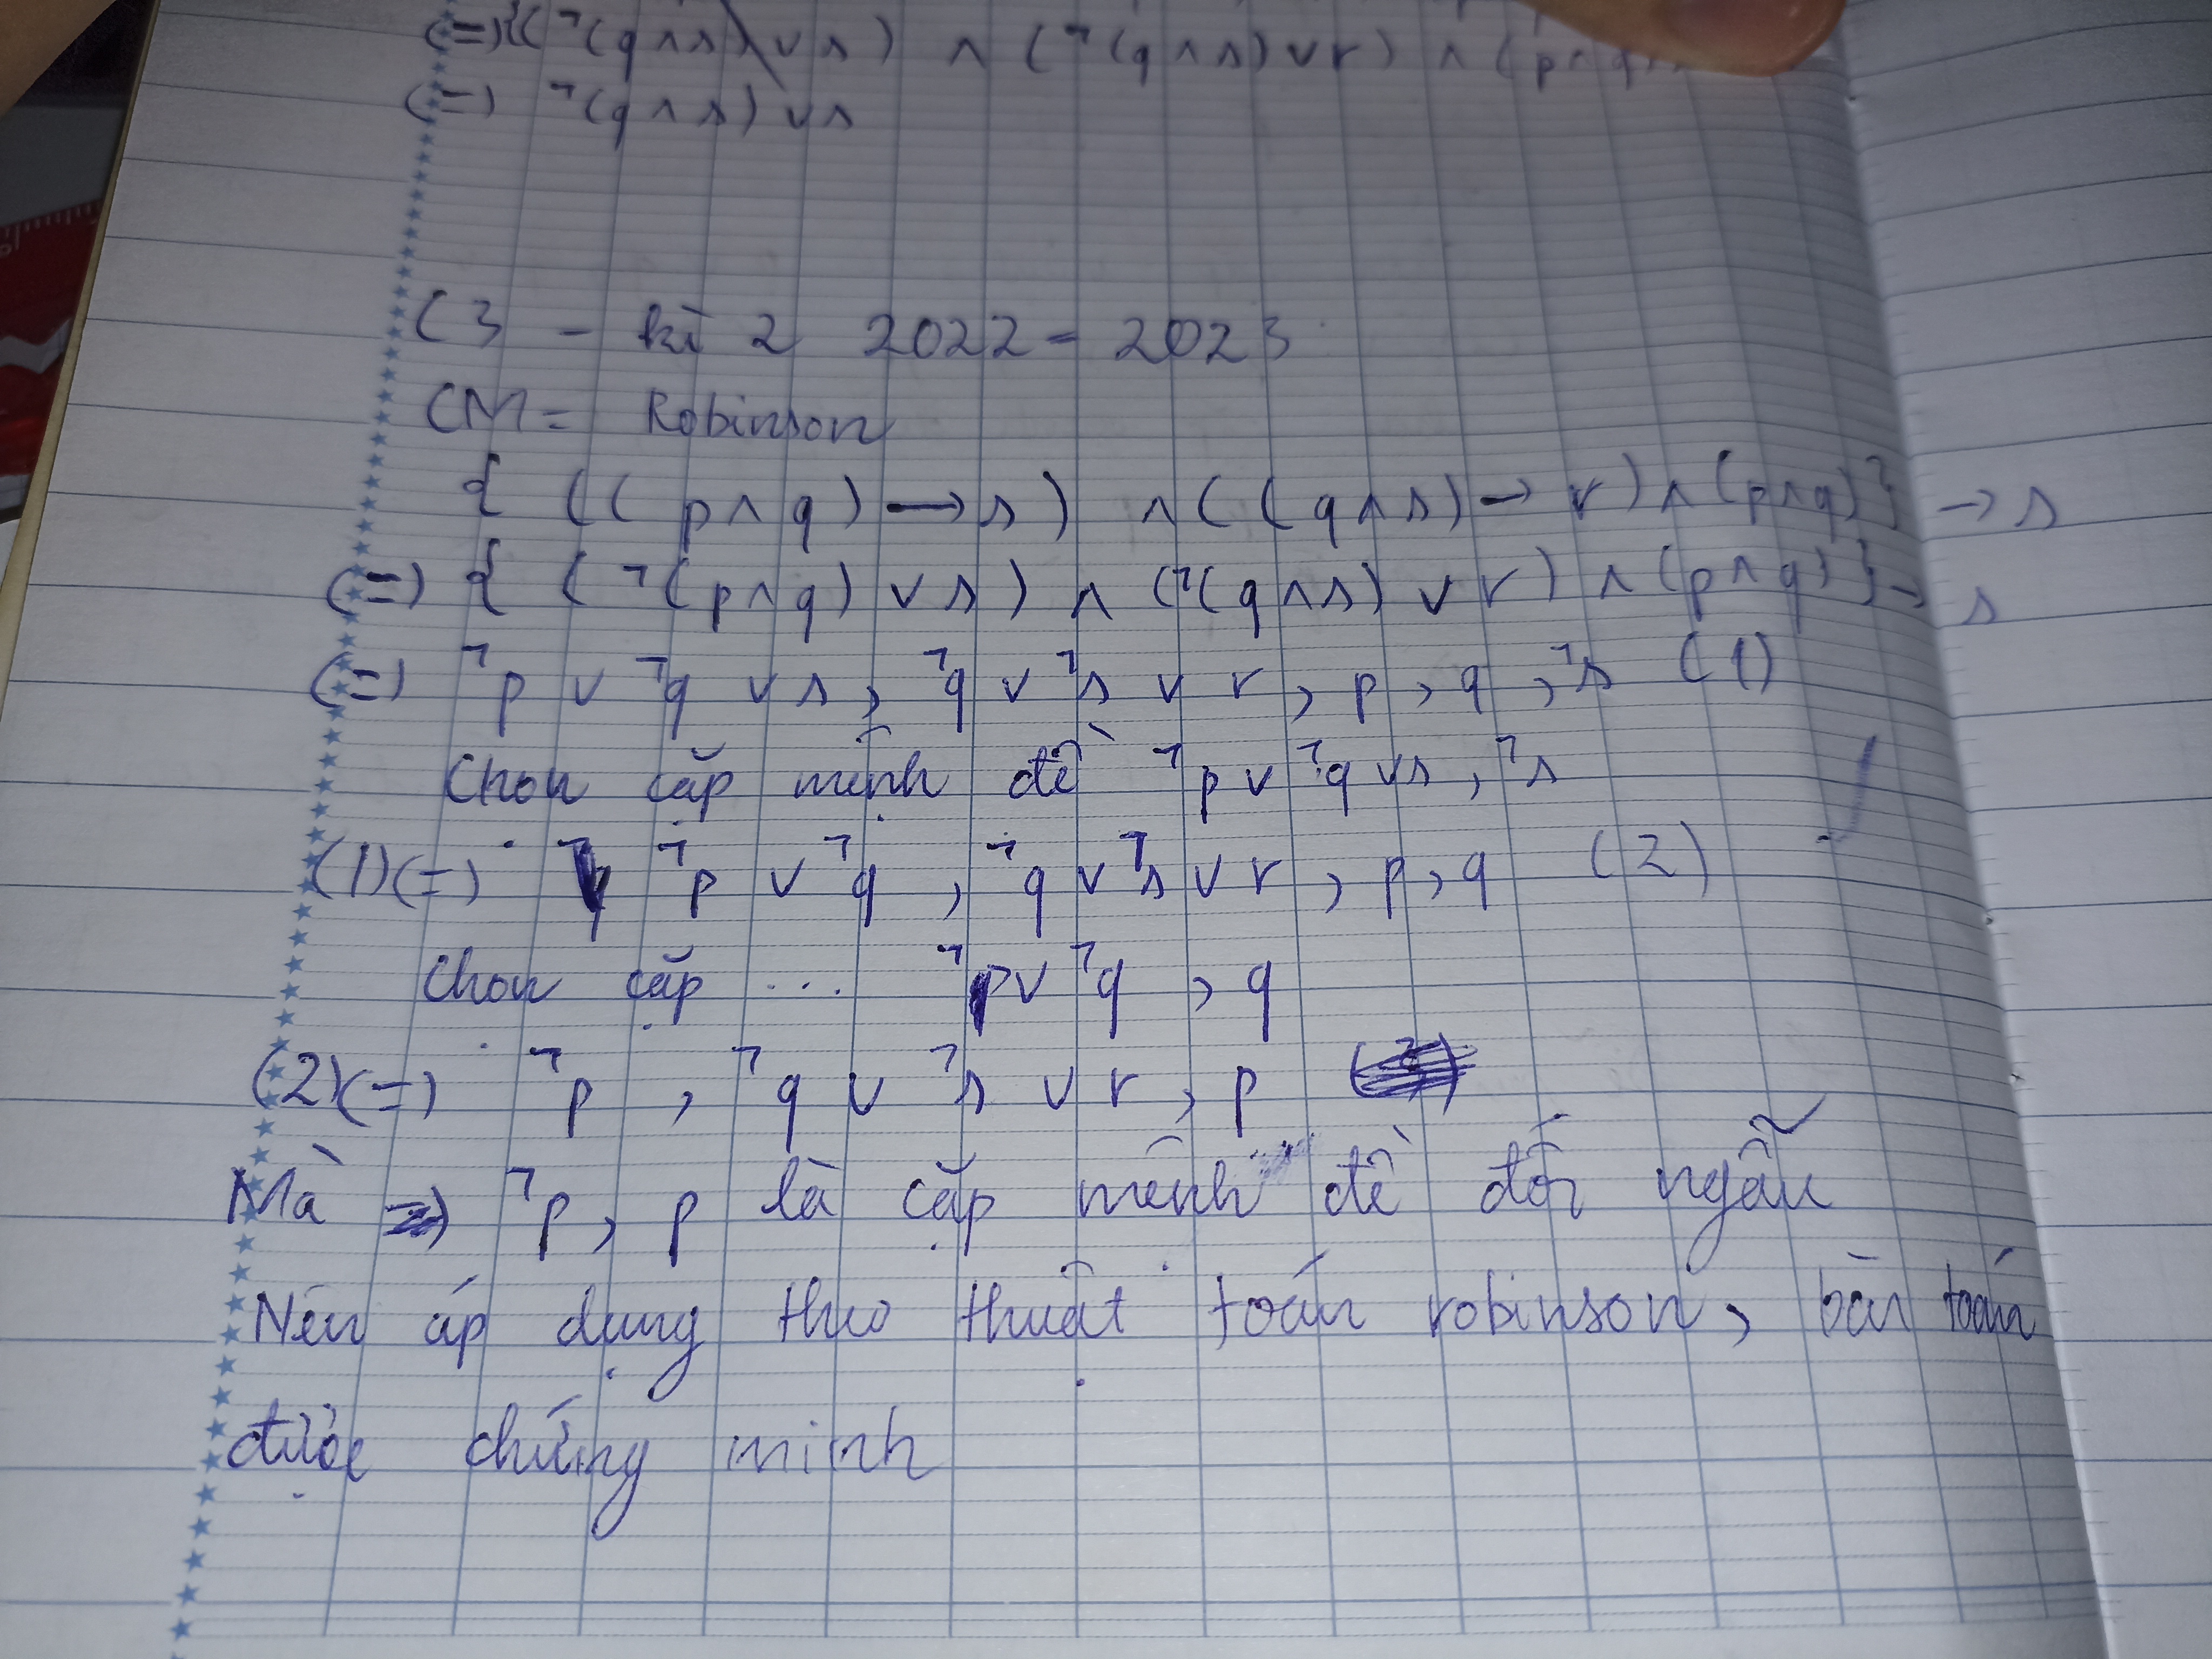 (=) {(¬(q∧s) ∨ s) ∧ (¬(q∧s) ∨ r) ∧ (p∧q)
(=) ¬(q∧s) ∨ s
C3 - kì 2 2022 - 2023
CM = Robinson
{ ((p∧q) → s) ∧ ((q∧s) → r) ∧ (p∧q)} → s
(=) { (¬(p∧q) ∨ s) ∧ (¬(q∧s) ∨ r) ∧ (p∧q)} → s
(=) ¬p ∨ ¬q ∨ s, ¬q ∨ ¬s ∨ r, p, q, ¬s (1)
Chọn cặp mệnh đề ¬p ∨ ¬q ∨ s, ¬s
(1) (=) ¬p ∨ ¬q, ¬q ∨ ¬s ∨ r, p, q (2)
Chọn cặp ... ¬p ∨ ¬q, q
(2) (=) ¬p, ¬q ∨ ¬s ∨ r, p
Mà ¬p, p là cặp mệnh đề đối ngẫu
Nên áp dụng theo thuật toán robinson, bài toán
được chứng minh